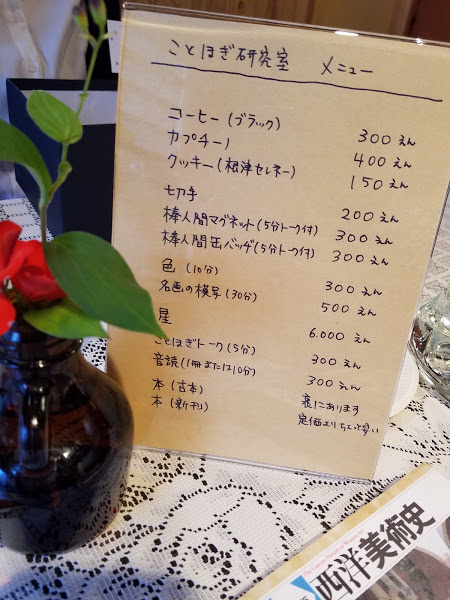 ことほぎ研究室 メニュー
コーヒー(ブラック) 300えん
カプチーノ 400えん
クッキー(根津セレネー) 150えん
切手 200えん
棒人間マグネット(5分トーク付) 300えん
棒人間缶バッヂ(5分トーク付) 300えん
色(10分) 300えん
名画の模写(30分) 500えん
星 6.000えん
ことほぎトーク(5分) 300えん
音読(1冊または10分) 300えん
本(古本) 裏にあります
本(新刊) 定価よりちょっと安い
西洋美術史